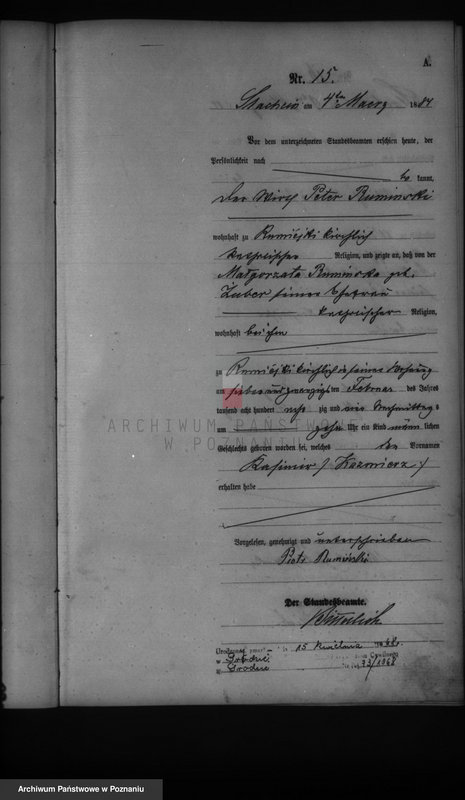 A.
Nr. 15.
am 4ten Maerz 1884
Vor dem unterzeichneten Standesbeamten erschien heute, der
Persönlichkeit nach
kannt,
Der Wirth Peter Rumiński
wohnhaft zu Rumiejki kirchlich
katholischer Religion, und zeigte an, daß von der
Małgorzata Rumińska geb.
Zuber seiner Ehefrau
katholischer Religion,
wohnhaft bei ihm
zu Rumiejki kirchlich in seiner Wohnung
am sieben und zwanzigsten Februar des Jahres
tausend acht hundert acht zig und vier Nachmittags
um zehn Uhr ein Kind männlichen
Geschlechts geboren worden sei, welches den Vornamen
Kasimir /: Kazmierz :/
erhalten habe
Vorgelesen, genehmigt und unterschrieben
Piotr Rumiński
Der Standesbeamte.
15 kwietnia 1968r.
w Grodzisku
33/1968
ARCHIWUM PAŃSTWOWE
W POZNANIU
Archiwum Państwowe w Poznaniu